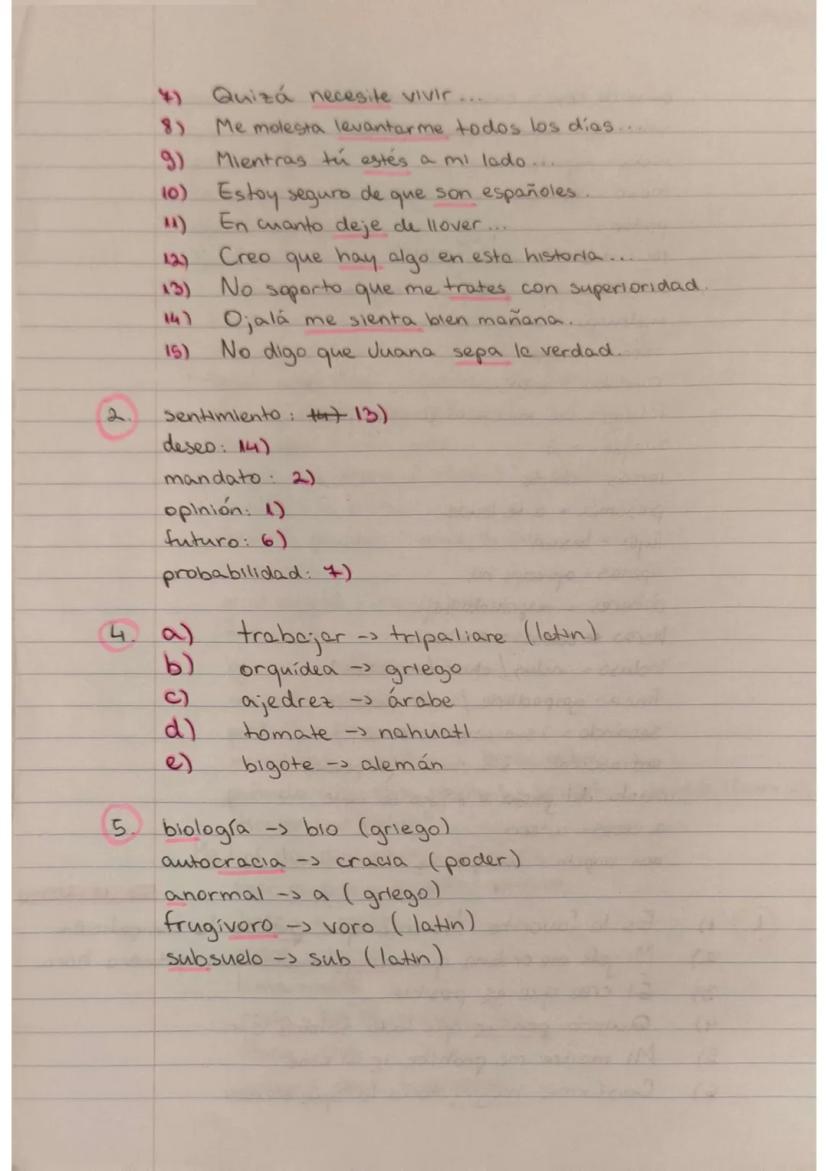 7) Quizá necesite vivir...
8) Me molesta levantarme todos los días...
9) Mientras tú estés a mi lado...
10) Estoy seguro de que son españoles.
11) En cuanto deje de llover...
12) Creo que hay algo en esta historia...
13) No soporto que me trates con superioridad.
14) Ojalá me sienta bien mañana.
15) No digo que Juana sepa la verdad.
2. sentimiento: 14) 13)
deseo: 14)
mandato: 2)
opinión: 1)
futuro: 6)
probabilidad: 7)
4. a) trabajar -> tripaliare (latin)
b) orquídea -> griego
c) ajedrez -> árabe
d) tomate -> nahuatl
e) bigote -> alemán
5. biología -> bio (griego)
autocracia -> cracia (poder)
anormal -> a (griego)
frugívoro -> voro (latin)
subsuelo -> sub (latin)